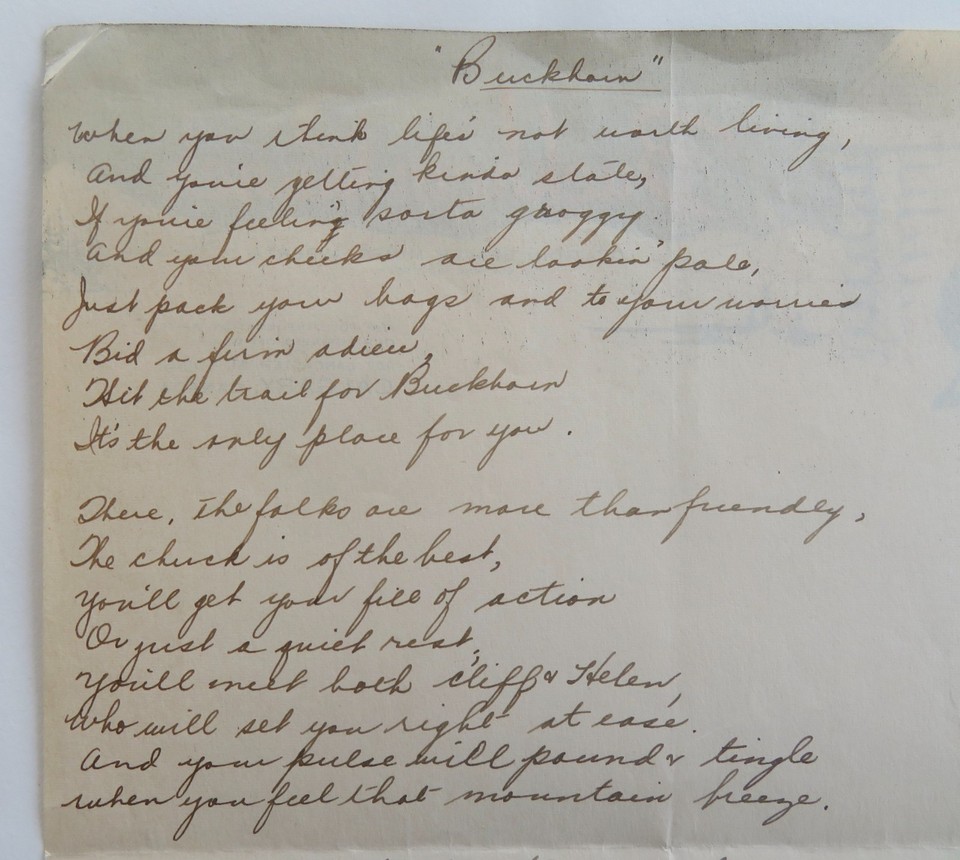 "Buckhorn"
When you think life's not worth living,
And you're getting kinda stale,
If you're feeling sorta groggy
And your cheeks are lookin' pale,
Just pack your bags and to your worries
Bid a firm adieu,
Hit the trail for Buckhorn
It's the only place for you.
There, the folks are more than friendly,
The chuck is of the best,
You'll get your fill of action
Or just a quiet rest;
You'll meet both Cliff & Helen,
Who will set you right at ease.
And your pulse will pound & tingle
When you feel that mountain breeze.